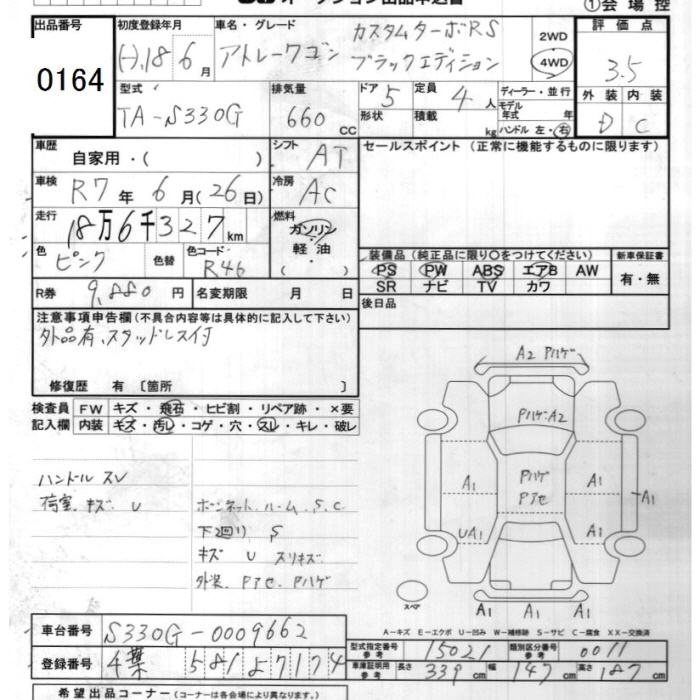 ①会場控
出品番号 0164
初度登録年月 (H)18年6月
車名・グレード アトレーワゴン カスタムターボRS ブラックエディション
2WD 4WD
評価点 3.5
外装 D 内装 C
型式 TA-S330G
排気量 660 cc
ドア 5 定員 4人
形状 積載 kg
ディーラー・並行
モデル年式 年
ハンドル 左・右
車歴 自家用・( )
シフト AT
セールスポイント(正常に機能するものに限ります)
車検 R7年6月(26日)
冷房 AC
走行 18万6千327km
燃料 ガソリン 軽油 ・( )
色 ピンク 色替 色コード R46
装備品(純正品に限り○をつけてください)
PS PW ABS エアB AW
SR ナビ TV カワ
新車保証書 有・無
R券 9,880円 名変期限 月 日
後日品
注意事項申告欄(不具合内容等は具体的に記入して下さい)
外品有、スタッドレス付
修復歴 有 [箇所 ]
検査員記入欄
FW キズ・飛石・ヒビ割・リペア跡・×要
内装 キズ・汚し・コゲ・穴・スレ・キレ・破レ
ハンドル スレ
荷室、キズ U
ボンネット、ルーム、S、C
下回り S
キズ U スリキズ
外装、Pアセ、Pハゲ
A2 Pハゲ
Pハゲ・A2
Pハゲ
Pアセ
A1 A1 A1
UA1 A1
A1 A1
スペア
A-キズ E-エクボ U-凹み W-補修跡 S-サビ C-腐食 XX-交換済
車台番号 S330G-0009662
型式指定番号 参考 15021 類別区分番号 参考 0011
登録番号 千葉 581 よ 7174
車庫証明用 参考 長さ 339cm 幅 147cm 高さ 187cm
希望出品コーナー(コーナーは各会場により異なります。)